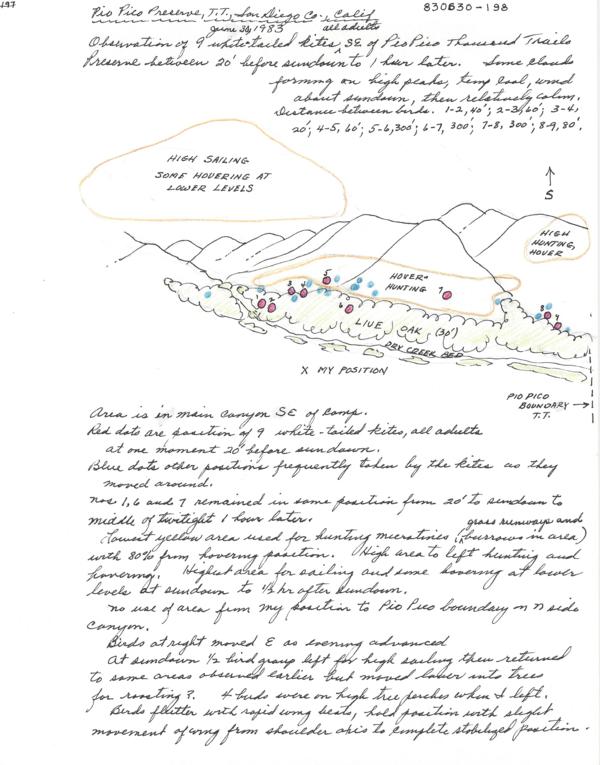 197
Pio Pico Preserve, T.T., San Diego Co., Calif 830630-198
June 30, 1983 all adults
Observation of 9 white-tailed kites, SE of Pio Pico Thousand Trails
Preserve between 20' before sundown to 1 hour later. Some clouds
forming on high peaks, temp cool, wind
about sundown, then relatively calm.
Distance between birds. 1-2, 40'; 2-3, 60'; 3-4,
20'; 4-5, 60'; 5-6, 300'; 6-7, 300'; 7-8, 300'; 8-9, 80'.
HIGH SAILING
SOME HOVERING AT
LOWER LEVELS
S
HIGH
HUNTING,
HOVER
HOVER +
HUNTING
1
2
3
4
5
6
7
8
9
LIVE OAK (30')
DRY CREEK BED
X MY POSITION
PIO PICO
BOUNDARY →
T.T.
Area is in main canyon SE of camp.
Red dots are position of 9 white-tailed kites, all adults
at one moment 20' before sundown.
Blue dots other positions frequently taken by the kites as they
moved around.
nos. 1, 6 and 7 remained in same position from 20' to sundown to
middle of twilight 1 hour later.
Lowest yellow area used for hunting microtines (grass runways and burrows in area)
with 80% from hovering position. High area to left hunting and
hovering. Highest area for sailing and some hovering at lower
levels at sundown to ½ hr after sundown.
No use of area from my position to Pio Pico boundary on N side
canyon.
Birds at right moved E as evening advanced
At sundown ½ bird group left for high sailing then returned
to same areas observed earlier but moved lower into trees
for roosting?. 4 birds were on high tree perches when I left.
Birds flutter with rapid wing beats, hold position with slight
movement of wing from shoulder axis to complete stabilized position.